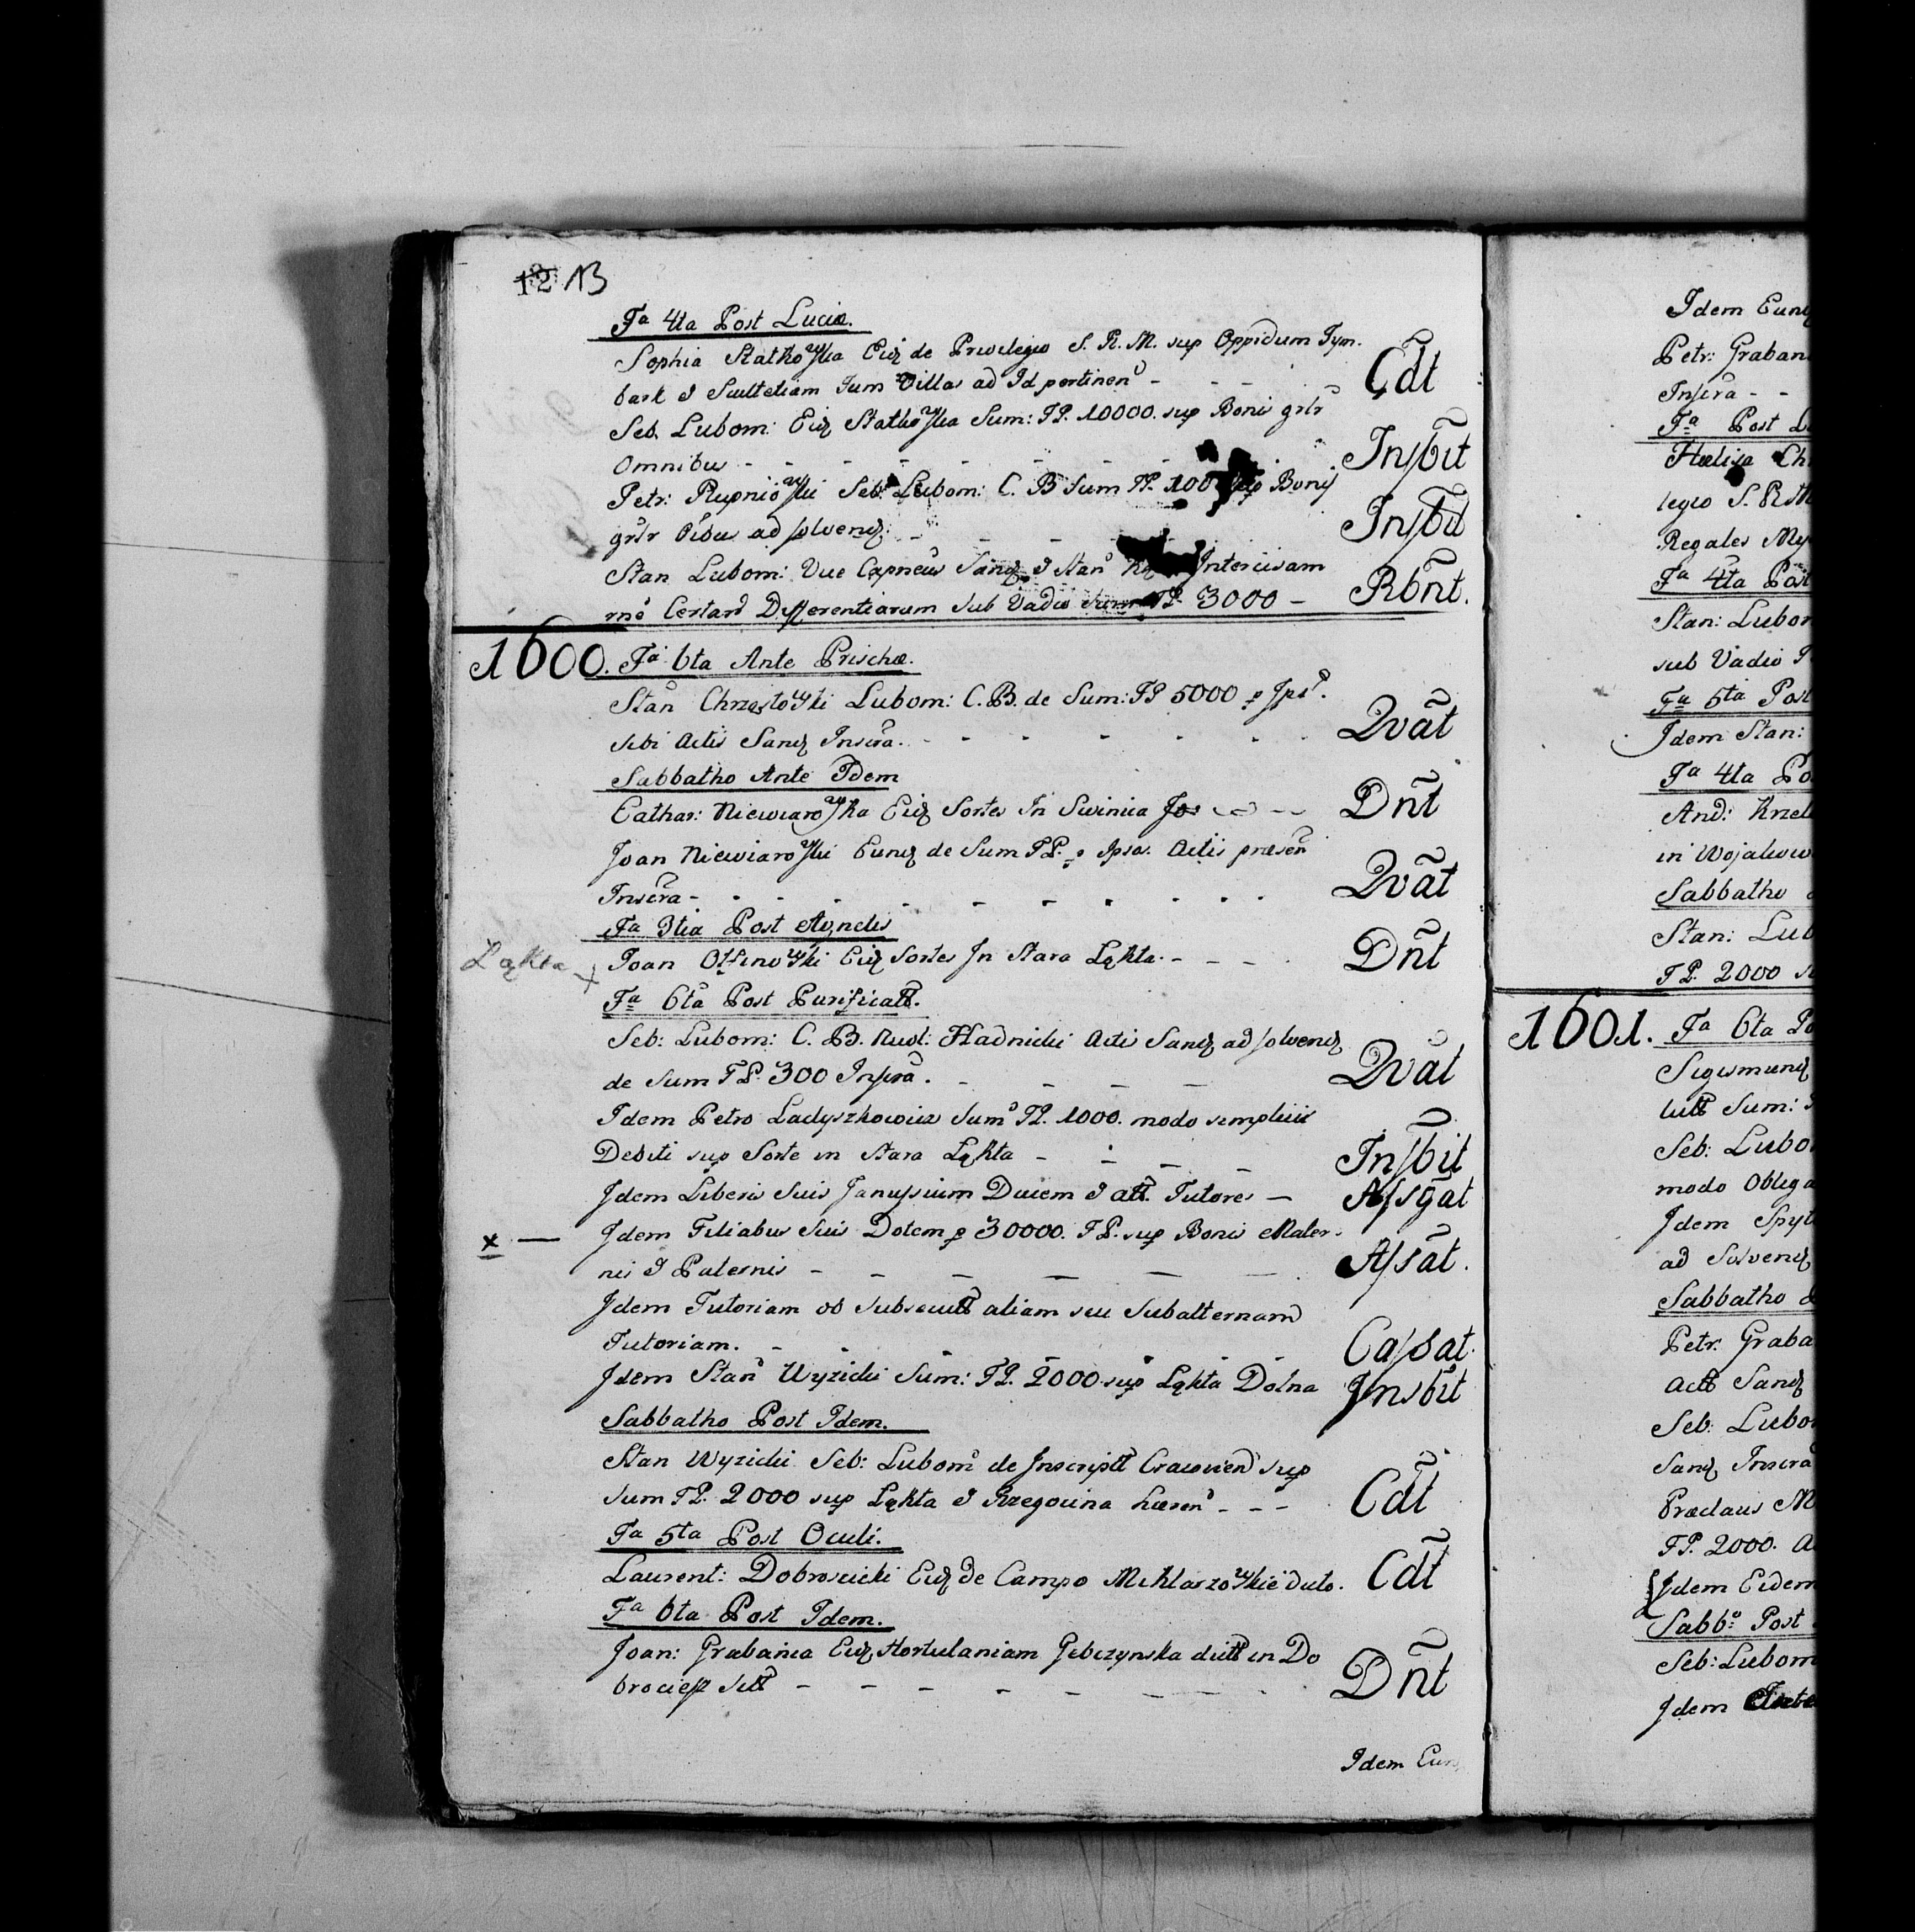 12 13
Fa 4ta Post Luciæ.
Sophia Statkowska Eidē de Privilegio S. R. M. sup Oppidum Tym.
bark & Scultetiam Tum Villas ad Id pertinen - - - Cdt
Seb. Lubom: Eidē Statkowska Sum: FP. 10000. sup Bonis grlr
Omnibus - - - - - - - Insbit
Petr: Rupniowski Seb: Lubom: C. B Sum FP. 100 sup Bonis
grlr Oibus ad solvend. - - - Insbit
Stan Lubom: Vice Capneus Sand & Stan Intercisam
Certar Differentiarum sub Vadio Sum FP. 3000 - Rbnt.
1600. Fa 6ta Ante Prischæ.
Stan Chrzęstowski Lubom: C. B. de Sum: FP 5000 p Ips.
sibi Actis Sand Inscra. - - - - - - Qvat
Sabbatho Ante Idem
Cathar: Niewiarowska Eidē Sortes In Swinica - - Dnt
Joan Niewiarowski Eund de Sum FP. p Ipsa. Actis præsen
Inscra - - - - - - - - - Qvat
Fa 3tia Post Agnetis
Łąkta x Joan Otfinowski Eidē Sortes In Stara Łąkta. - - - Dnt
Fa 6ta Post Purificatt.
Seb: Lubom: C. B. Hadnicki Actis Sand ad solvend
de Sum FP. 300 Inscra. - - - - Qvat
Idem Petro Ladyszkowicz Sum FP. 1000. modo simplicis
Debiti sup Sorte in Stara Łąkta - - - - Insbit
Idem Liberis Suis Janussium Ducem & att. Tutores - Assgat
x — Idem Filiabus Suis Dotem p 30000. FP. sup Bonis Mater.
nis & Paternis - - - - - - Assat.
Idem Tutoriam ob Subsecutt aliam seu Subalternam
Tutoriam. - - - - - - Cassat.
Idem Stan Wyzicki Sum: FP. 2000 sup Łąkta Dolna Insbit
Sabbatho Post Idem.
Stan Wyzicki Seb: Lubom de Inscriptt Cracovien sup
Sum FP. 2000 sup Łąkta & Rzegocina hæren - - - Cdt
Fa 5ta Post Oculi.
Laurent: Dobrocicki Eidē de Campo Miklaszowskie dicto. Cdt
Fa 6ta Post Idem.
Joan: Grabania Eidē Hortulaniam Gebczynska dictt in Do
brociesz sitt - - - - - - - Dnt
Idem Eun
Idem Eund
Petr: Graban
Inscra - -
Fa Post L
legio S. R. M
Regales My
Fa 4ta Post
Stan: Lubom
sub Vadio
Fa 5ta Post
Idem Stan:
Fa 4ta Po
And: Krzel
in Wojakow
Sabbatho
Stan: Lub
FP. 2000 s
1601. Fa 6ta Po
Sigismund
Sum:
Seb: Lubo
modo Obliga
Idem Spyt
ad Solvend
Sabbatho
Petr: Graba
Actt Sand
Seb: Lubo
Sand Inscra
Prædaus M
FP. 2000. A
Idem Eidem
Sabbo: Post
Seb: Lubom
Idem